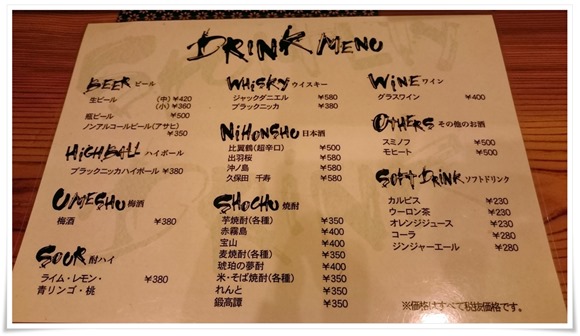 DRINK MENU
BEER ビール
生ビール (中) ¥420
(小) ¥360
瓶ビール ¥500
ノンアルコールビール(アサヒ)
¥350
HiGHBALL ハイボール
ブラックニッカハイボール ¥380
UMESHU 梅酒
梅酒 ¥380
SOUR 酎ハイ
ライム・レモン・ ¥380
青リンゴ・桃
WHiSKY ウイスキー
ジャックダニエル ¥580
ブラックニッカ ¥380
NiHONSHU 日本酒
比翼鶴(超辛口) ¥500
出羽桜 ¥580
沖ノ島 ¥580
久保田 千寿 ¥580
SHOCHU 焼酎
芋焼酎(各種) ¥350
赤霧島 ¥400
宝山 ¥400
麦焼酎(各種) ¥350
琥珀の夢酎 ¥400
米・そば焼酎(各種) ¥350
れんと ¥350
鍛高譚 ¥350
WiNE ワイン
グラスワイン ¥400
OTHERS その他のお酒
スミノフ ¥500
モヒート ¥500
SOFT DRINK ソフトドリンク
カルピス ¥230
ウーロン茶 ¥230
オレンジジュース ¥230
コーラ ¥280
ジンジャーエール ¥280
※価格はすべて税抜価格です。